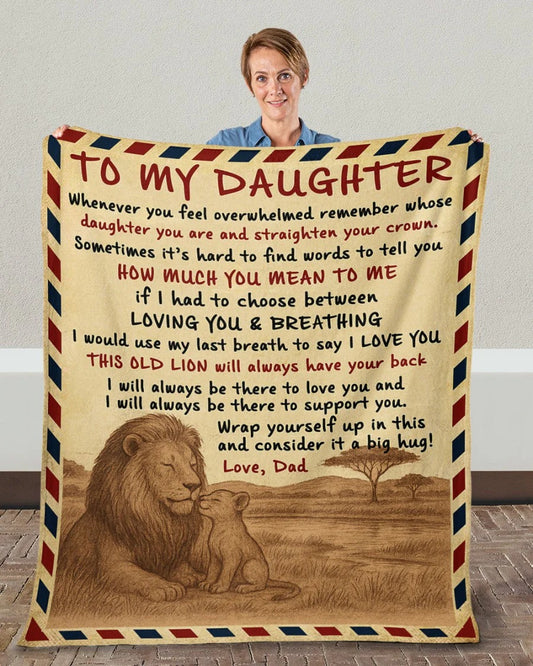 TO MY DAUGHTER
Whenever you feel overwhelmed remember whose
daughter you are and straighten your crown.
Sometimes it's hard to find words to tell you
HOW MUCH YOU MEAN TO ME
if I had to choose between
LOVING YOU & BREATHING
I would use my last breath to say I LOVE YOU
THIS OLD LION will always have your back
I will always be there to love you and
I will always be there to support you.
Wrap yourself up in this
and consider it a big hug!
Love, Dad